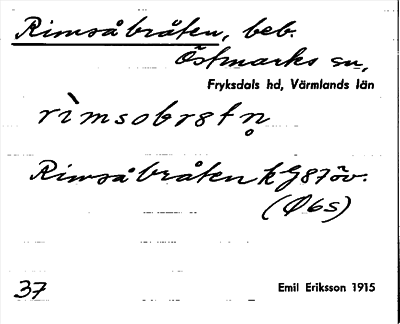 Rimsåbråten, beb.
Östmarks sn,
Fryksdals hd, Värmlands län
rìmsobrstn̥
Rimsåbråten k G87öv.
(Ø6S)
37
Emil Eriksson 1915